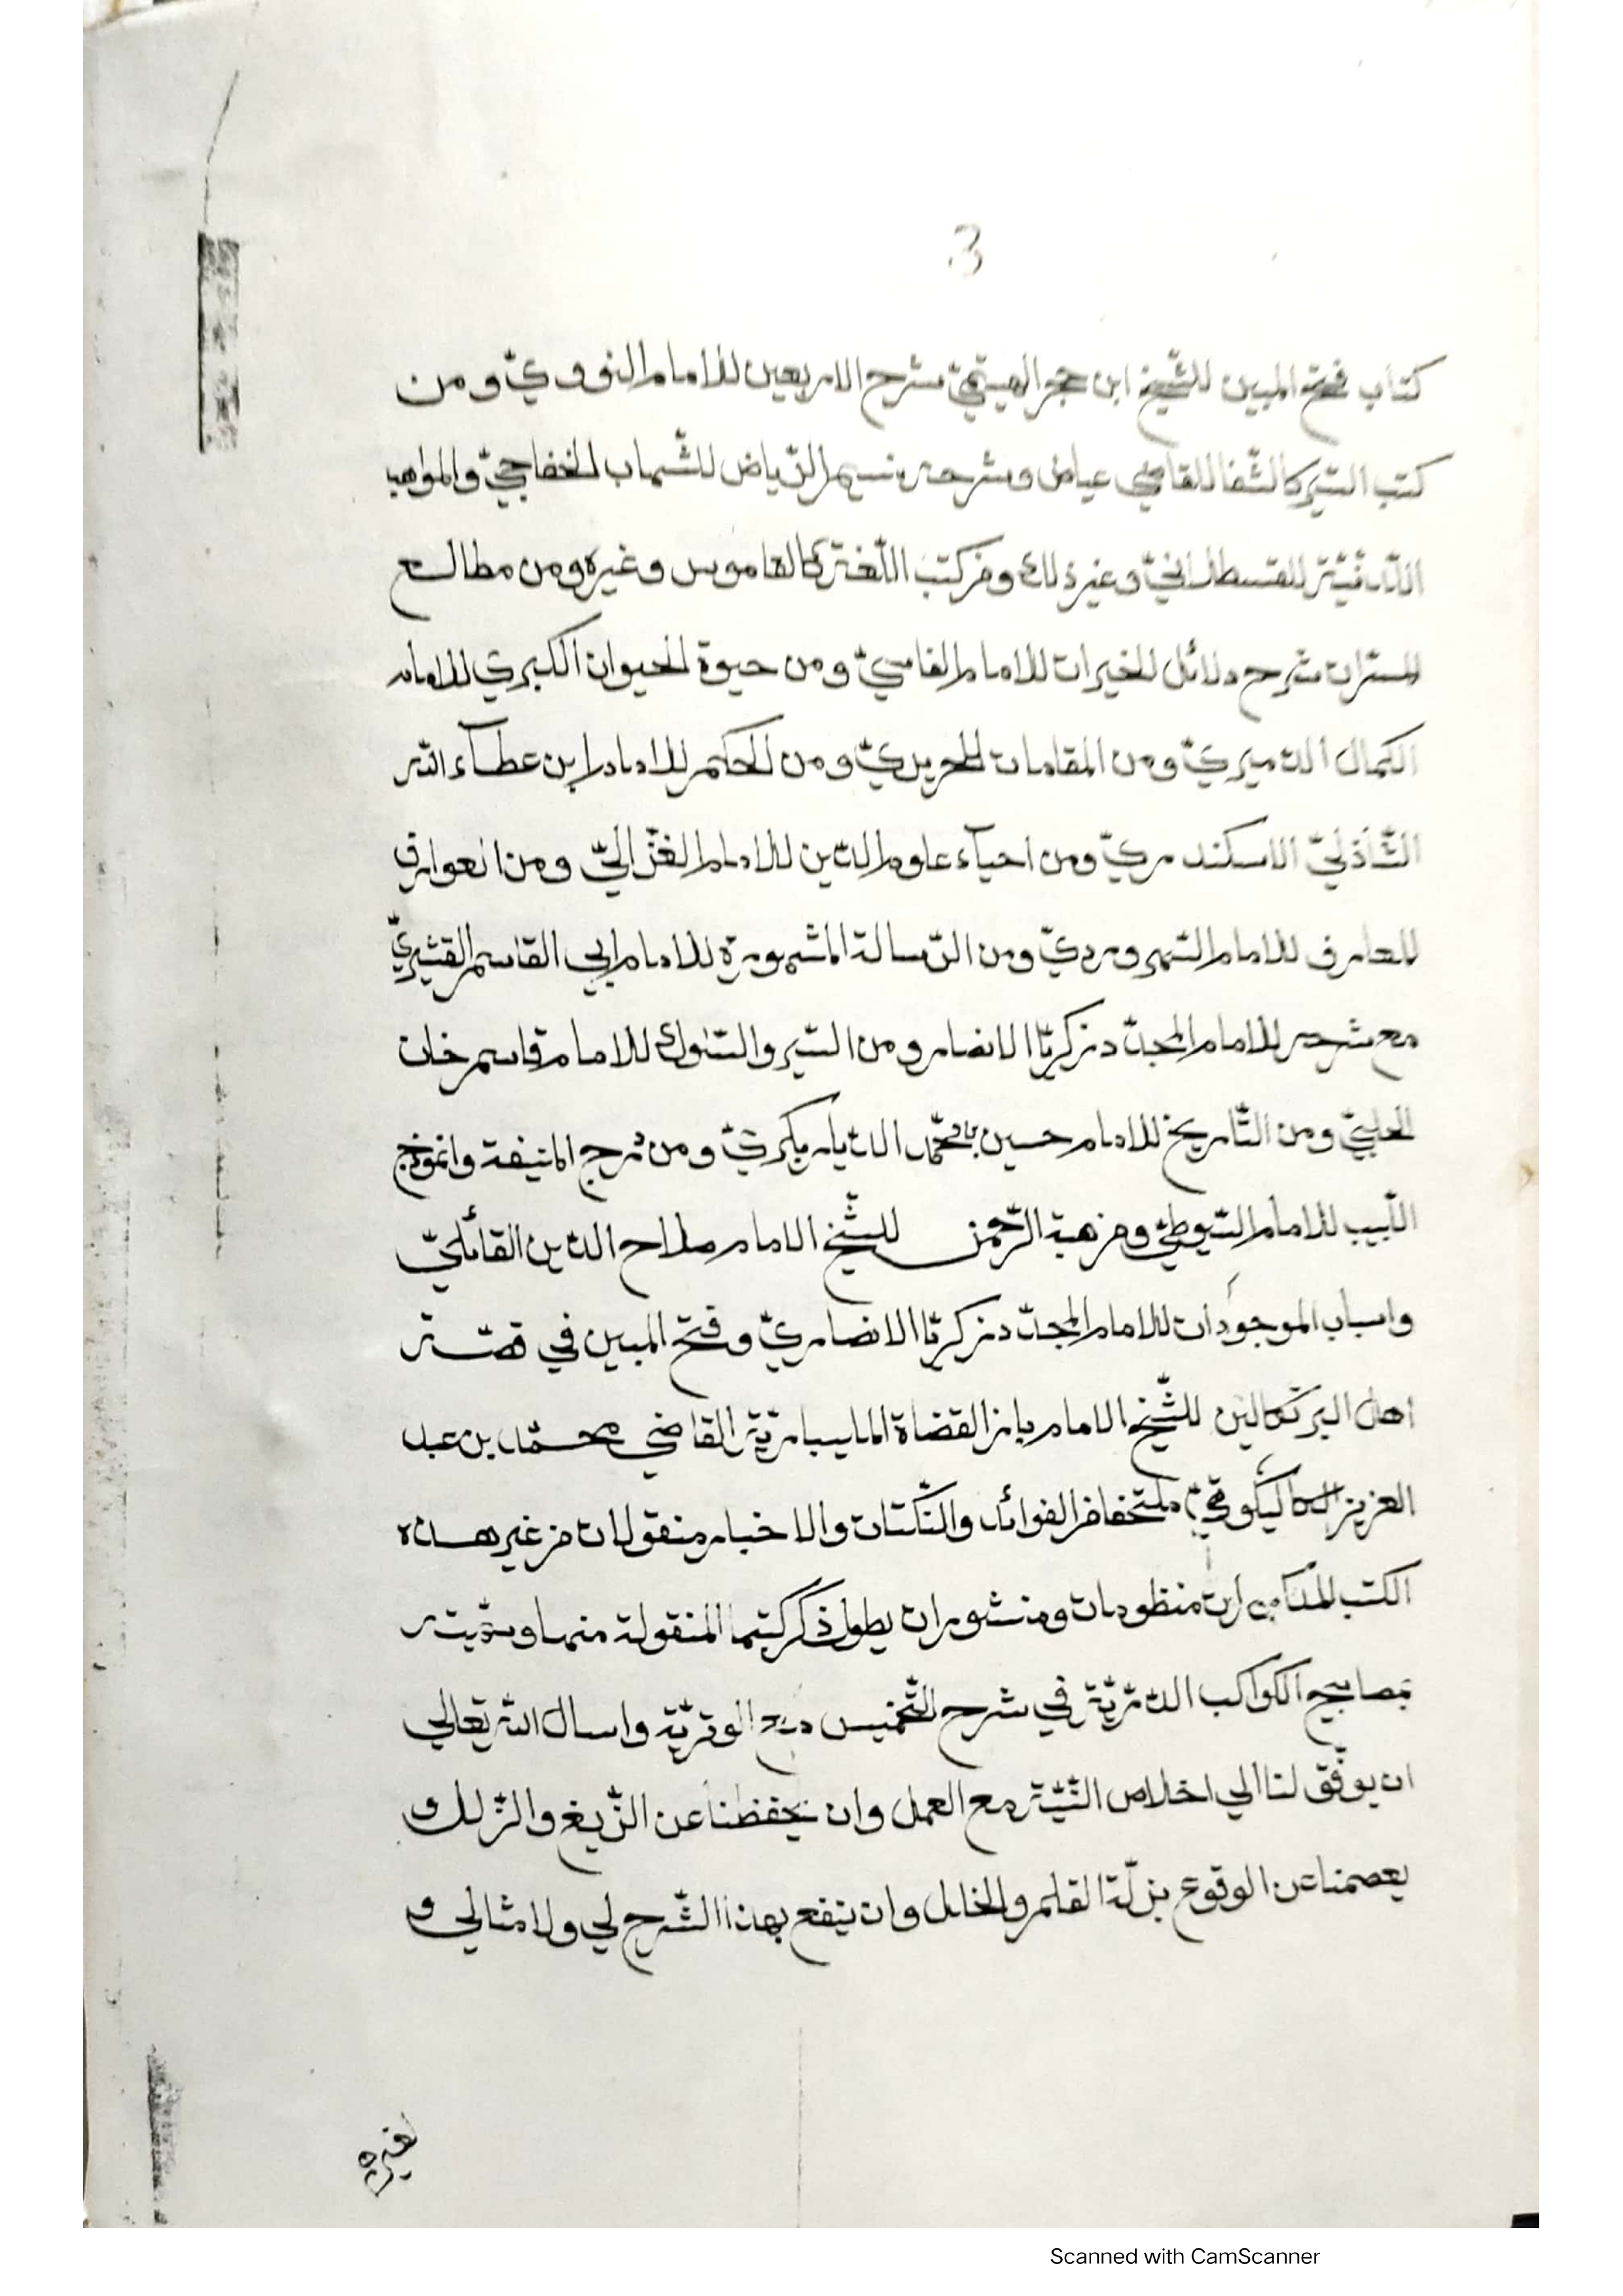 3
كتاب فتح المبين للشّيخ ابن حجر الهيتميّ شرح الاربعين للامام النّوويّ ومن
كتب السّير كالشّفا للقاضي عياض وشرحه نسيم الرّياض للشّهاب الخفاجيّ والمواهب
اللّدنّيّة للقسطلانيّ وغير ذلك ومن كتب اللّغة كالقاموس وغيره ومن مطالع
المسرّات شرح دلائل الخيرات للامام الفاسيّ ومن حيوة الحيوان الكبرى للامام
الكمال الدّميريّ ومن المقامات للحريريّ ومن الحكم للامام ابن عطآء اللّه
الشّاذليّ الاسكندريّ ومن احيآء علوم الدّين للامام الغزّاليّ ومن العوارف
للعارف للامام السّهرورديّ ومن الرّسالة المشهورة للامام ابي القاسم القشيريّ
مع شرحه للامام المجدّد زكريّا الانصار ومن السّير والسّلوك للامام قاسم خان
الحلبيّ ومن التّاريخ للامام حسين بن محمّد الدّيار بكريّ ومن درج المنيفة وانموذج
اللّبيب للامام السّيوطيّ ومن هبة الرّحمن للشّيخ الامام صلاح الدّين القائليّ
واسباب الموجودات للامام المجدّد زكريّا الانصاريّ وفتح المبين في قصّة
اهل البرتكالين للشّيخ الامام باز القضاة المليبارّيّة القاضي محمّد بن عبد
العزيز الكاليكوتيّ ملتحفا من الفوائد والنّكتات والاخبار منقولات من غير هذه
الكتب المذكورات منظومات ومنشورات يطول ذكر كتبها المنقولة منها وسمّيته
بمصابيح الكواكب الدّرّيّة في شرح التّخميس مدح الوتريّة واسال اللّه تعالى
ان يوفّق لنا الي اخلاص النّيّة مع العمل وان يحفظنا عن الزّيغ والزّلل و
يعصمنا عن الوقوع بزلّة القلم والخلل وان ينفع بهذا الشّرح لي ولامثالي و
لغيره
Scanned with CamScanner